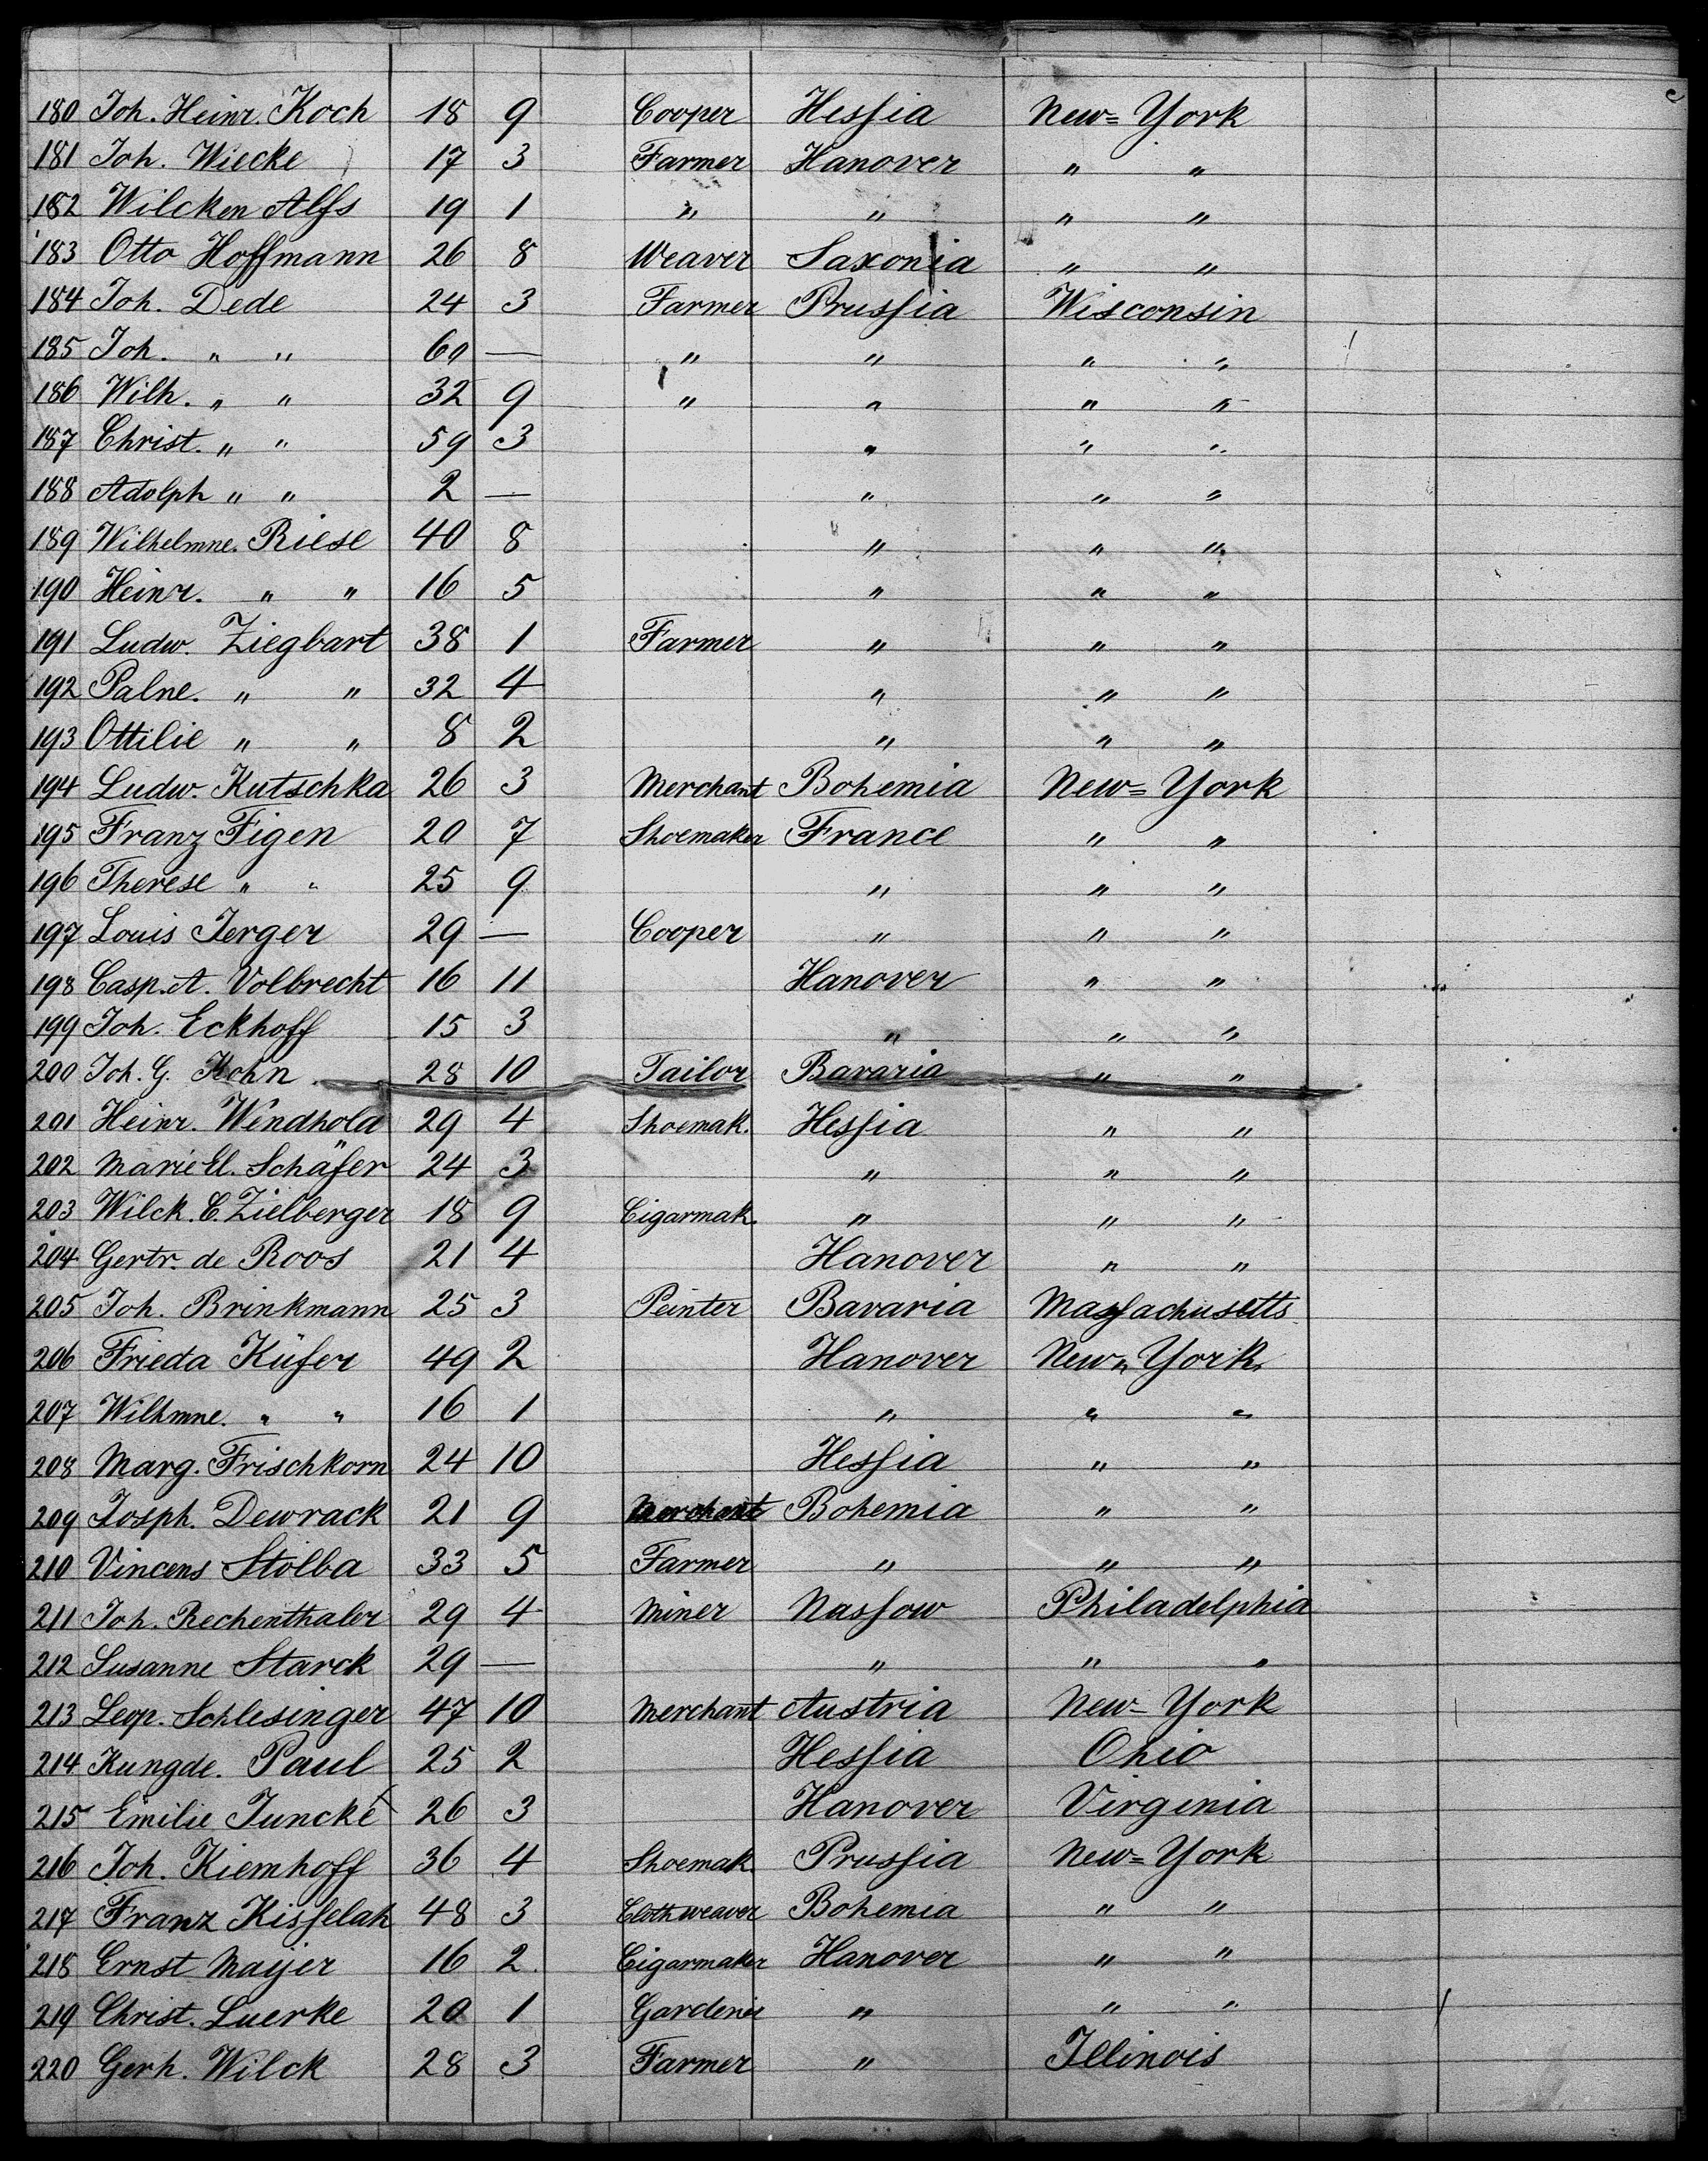 180 Joh. Heinr. Koch 18 9 Cooper Hessia New=York
181 Joh. Wiecke 17 3 Farmer Hanover " "
182 Wilcken Alfs 19 1 " " " "
183 Otto Hoffmann 26 8 Weaver Saxonia " "
184 Joh. Dede 24 3 Farmer Prussia Wisconsin
185 Joh. " " 60 — " " " "
186 Wilh. " " 32 9 " " " "
187 Christ. " " 59 3 " " "
188 Adolph " " 2 — " " "
189 Wilhelmne. Riese 40 8 " " "
190 Heinr. " " 16 5 " " "
191 Ludw. Ziegbart 38 1 Farmer " " "
192 Palne. " " 32 4 " " "
193 Ottilie " " 8 2 " " "
194 Ludw. Kutschka 26 3 Merchant Bohemia New=York
195 Franz Figen 20 7 Shoemaker France " "
196 Therese " " 25 9 " " "
197 Louis Jerger 29 — Cooper " " "
198 Casp. A. Volbrecht 16 11 Hanover " "
199 Joh. Eckhoff 15 3 " " "
200 Joh. G. Kohn 28 10 Tailor Bavaria " "
201 Heinr. Windhold 29 4 Shoemak. Hessia " "
202 Marie El. Schäfer 24 3 " " "
203 Wilck. C. Zielberger 18 9 Cigarmak. " " "
204 Gertr. de Roos 21 4 Hanover " "
205 Joh. Brinkmann 25 3 Peinter Bavaria Massachusetts
206 Frieda Küfer 49 2 Hanover New York
207 Wilhmne. " " 16 1 " " "
208 Marg. Frischkorn 24 10 Hessia " "
209 Josph. Dewrack 21 9 Merchant Bohemia " "
210 Vincens Stolba 33 5 Farmer " " "
211 Joh. Rechenthaler 29 4 Miner Nassow Philadelphia
212 Susanne Starck 29 — " " "
213 Leop. Schlesinger 47 10 Merchant Austria New-York
214 Kungde. Paul 25 2 Hessia Ohio
215 Emilie Juncke 26 3 Hanover Virginia
216 Joh. Kiemhoff 36 4 Shoemak. Prussia New=York
217 Franz Kisselak 48 3 Clothweaver Bohemia " "
218 Ernst Mayer 16 2 Cigarmaker Hanover " "
219 Christ. Luerke 20 1 Gardener " " "
220 Gerh. Wilck 28 3 Farmer " Illinois